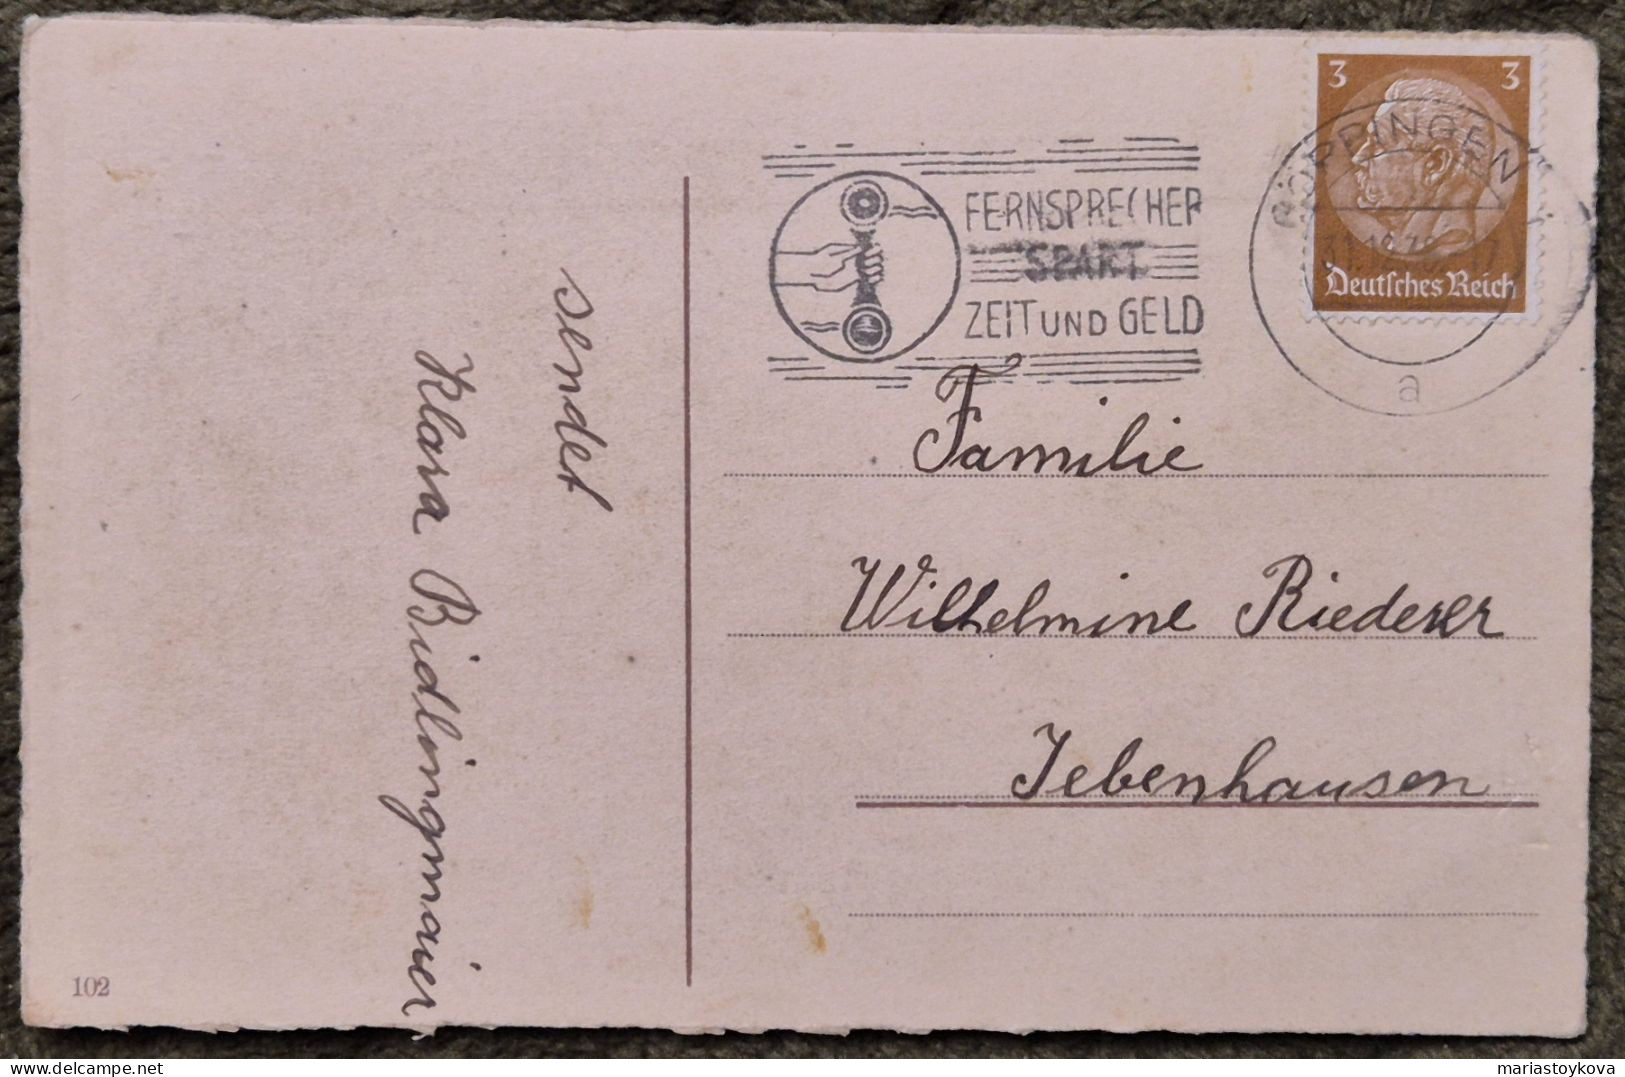 sendet
Klara Bidlingmaier
102
FERNSPRECHER
SPART
ZEIT UND GELD
3 3
Deutsches Reich
GÖPPINGEN
a
Familie
Wilhelmine Riederer
Jebenhausen
delcampe.net
mariastoykova